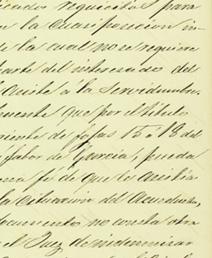 icados requisitos para
n la cuasiposesion in-
de la cual no se requiere
parte del interesado del
Asiste a la Servidumbre
mente que por el título
niente de fojas 15 a 18 del
favor de Garcia, pueda
la fé de que le asistia
la situacion del Acueducto,
documento no consta otra
el Juez de indemnizar